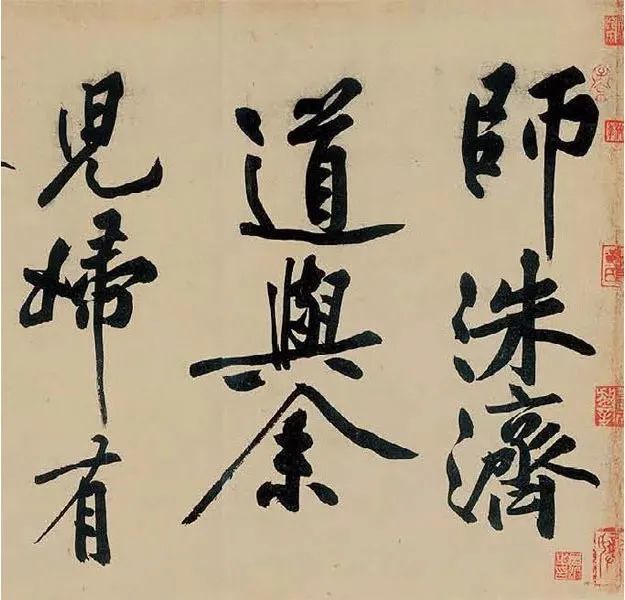 師洙濟
道與余
兒婦有